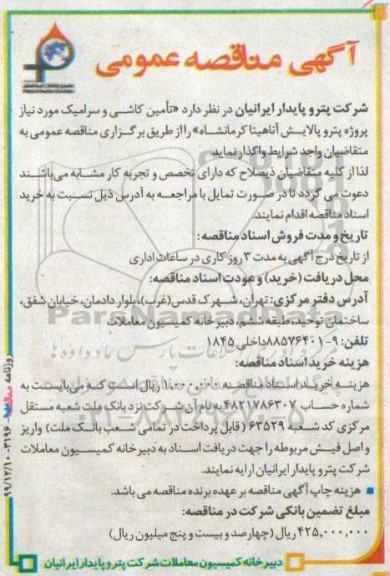 آگهی مناقصه عمومی
شرکت پترو پایدار ایرانیان در نظر دارد «تأمین کاشی و سرامیک مورد نیاز
پروژه پترو پالایش آناهیتا کرمانشاه» را از طریق برگزاری مناقصه عمومی به
متقاضیان واجد شرایط واگذار نماید.
لذا از کلیه متقاضیان ذیصلاح که دارای تخصص و تجربه کار مشابه می‌باشند
دعوت می گردد تا در صورت تمایل با مراجعه به آدرس ذیل نسبت به خرید
اسناد مناقصه اقدام نمایند.
تاریخ و مدت فروش اسناد مناقصه:
از تاریخ درج آگهی به مدت ۳ روز کاری در ساعات اداری
محل دریافت (خرید) و عودت اسناد مناقصه:
آدرس دفتر مرکزی: تهران، شهرک قدس(غرب)، بلوار دادمان، خیابان شفق،
ساختمان توحید، طبقه ششم، دبیرخانه کمیسیون معاملات
تلفن: ۹-۸۸۵۷۶۴۰۱ داخلی ۱۸۴۵
هزینه خرید اسناد مناقصه:
هزینه خرید اسناد مناقصه ۱،۰۰۰،۰۰۰ ریال است که می‌بایست به
شماره حساب ۴۸۲۱۷۸۶۳۰۷ به نام آن شرکت نزد بانک ملت شعبه مستقل
مرکزی کد شعبه ۶۳۵۲۹ (قابل پرداخت در تمامی شعب بانک ملت) واریز
و اصل فیش مربوطه را جهت دریافت اسناد به دبیرخانه کمیسیون معاملات
شرکت پترو پایدار ایرانیان ارایه نمایند.
هزینه چاپ آگهی مناقصه بر عهده برنده مناقصه می باشد.
مبلغ تضمین بانکی شرکت در مناقصه:
۴۲۵,۰۰۰,۰۰۰ ریال (چهارصد و بیست و پنج میلیون ریال)
دبیرخانه کمیسیون معاملات شرکت پترو پایدار ایرانیان
روزنامه
۹۹/۱۲/۱۰-۳۱۹۶
ParsNamadData